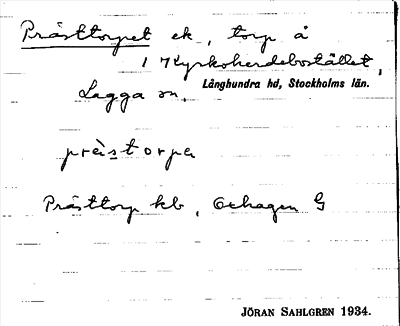 Prästtorpet ek, torp å
1 Kyrkoherdebostället,
Långhundra hd, Stockholms län.
Lagga sn.
prästorpe
Prästtorp kb, Ochagen G
JÖRAN SAHLGREN 1934.